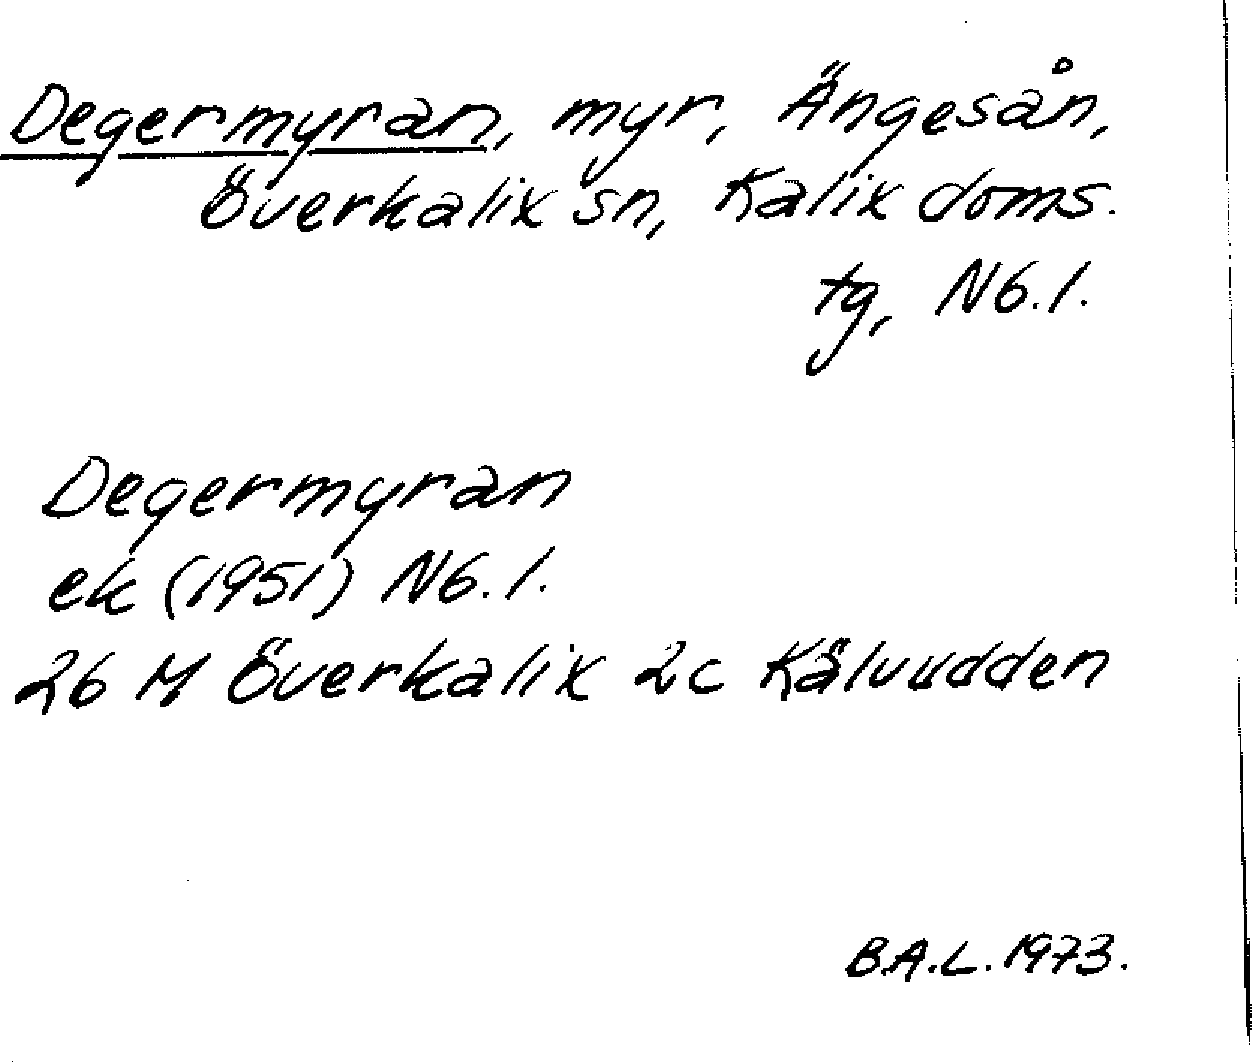 Degermyran, myr, Ängesån,
Överkalix sn, Kalix doms.
tg, N6.1.
Degermyran
ek (1951) N6.1.
26 M Överkalix 2c Kälvudden
B.A.L. 1973.